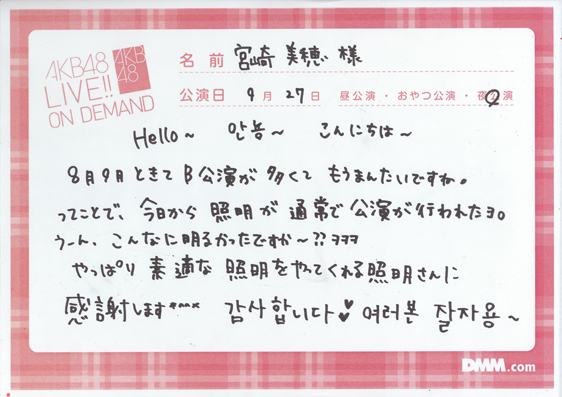 AKB48
LIVE!!
ON DEMAND
AKB
48
名前 宮崎美穂 様
公演日 9月27日 昼公演・おやつ公演・夜公演
Hello~ 안뇽~ こんにちは~
8月9月ときてB公演が多くてもうまんたいですね。
ってことで、今日から照明が通常で公演が行われたヨ。
うーん、こんなに明るかったですか~??ヨヨヨ
やっぱり素適な照明をやってくれる照明さんに
感謝します 감사합니다♥여러분 잘자용~
DMM.com